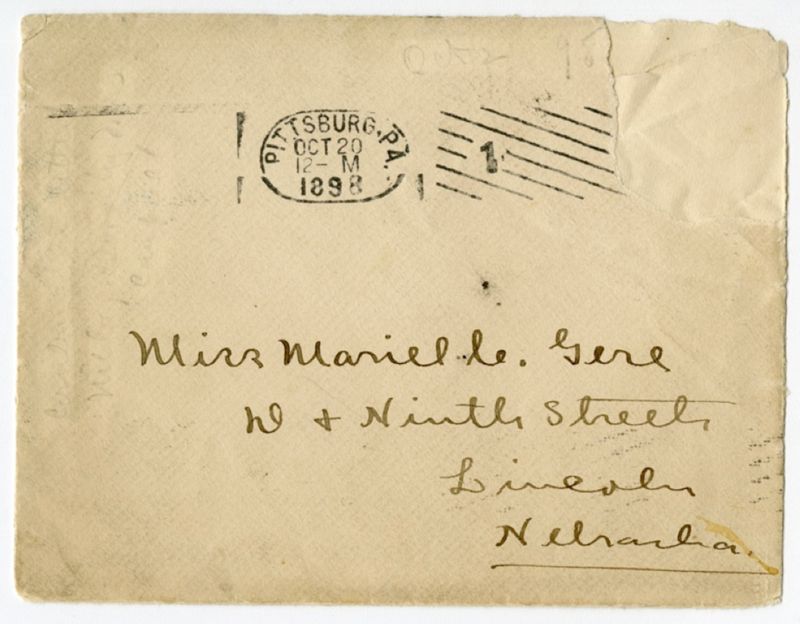 Oct
PITTSBURG, PA.
OCT 20
12- M
1898
1
Miss Mariel C. Gere
D + Ninth Street
Lincoln
Nebraska.